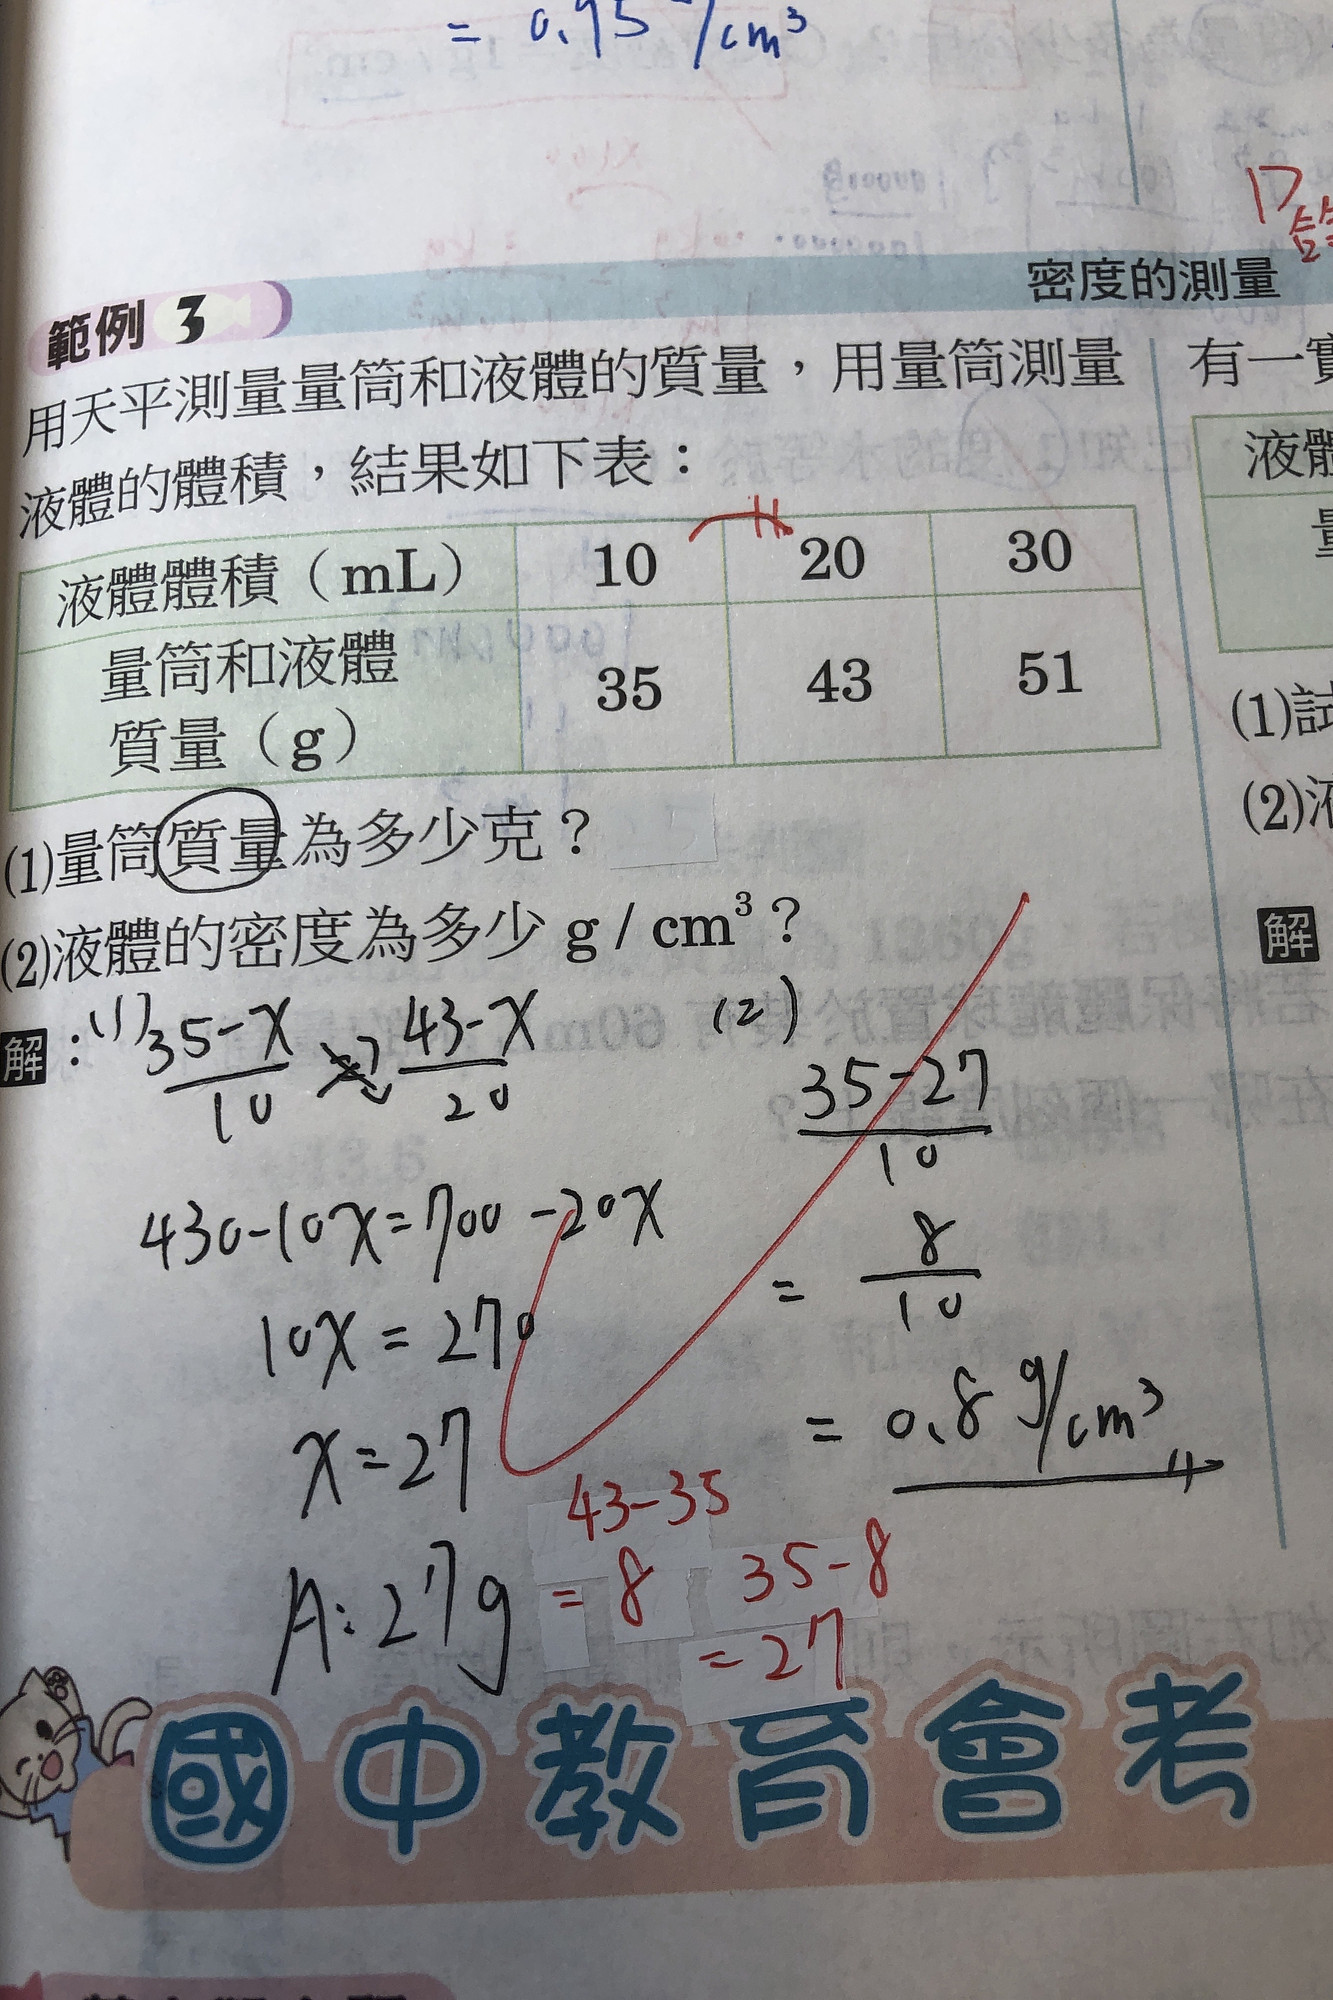 = 0.95 g/cm³
範例 3
密度的測量
用天平測量量筒和液體的質量，用量筒測量
液體的體積，結果如下表：
液體體積（mL） 10 20 30
量筒和液體
質量（g） 35 43 51
(1)量筒質量為多少克？
(2)液體的密度為多少 g / cm³？
解：(1) 35-x/10 43-x/20
430-10x=700-20x
10x=270
x=27
A:27g
(2)
35-27/10
= 8/10
= 0.8 g/cm³
43-35
= 8
35-8
=27
有一
液體
(1)試
(2)液
解
國中教育會考